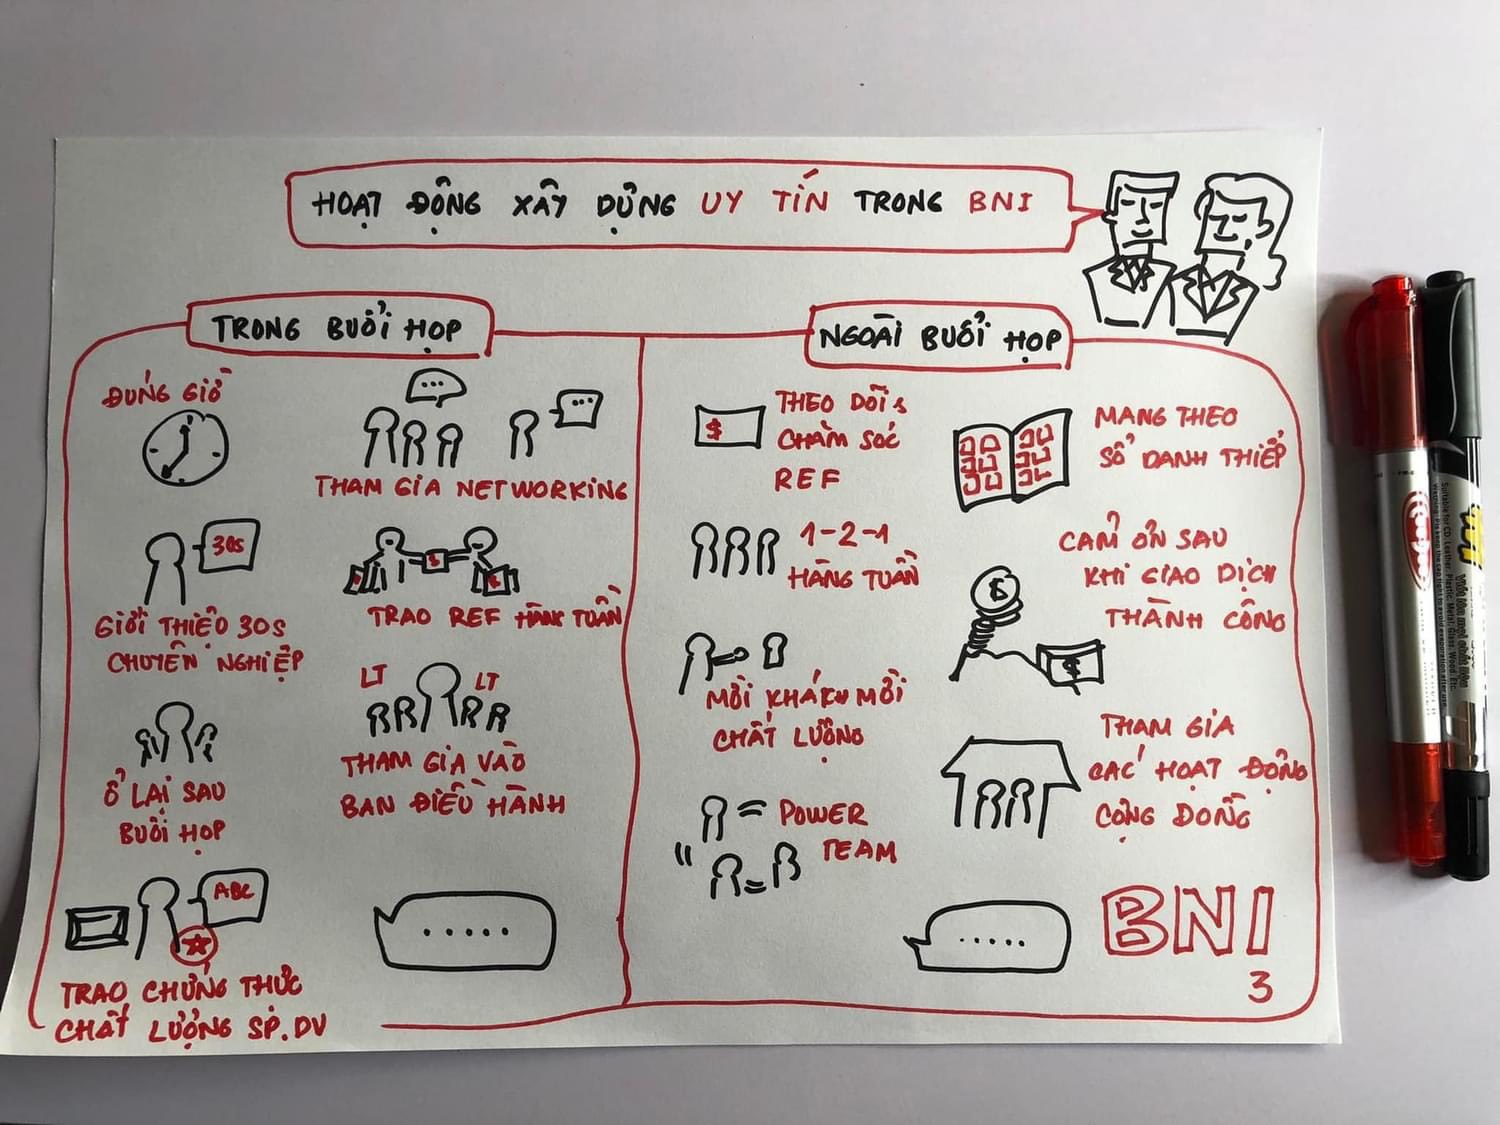 HOẠT ĐỘNG XÂY DỰNG UY TÍN TRONG BNI
TRONG BUỔI HỌP
ĐÚNG GIỜ
...
...
THAM GIA NETWORKING
30s
GIỚI THIỆU 30s
CHUYÊN NGHIỆP
$
$
TRAO REF HÀNG TUẦN
Ở LẠI SAU
BUỔI HỌP
LT
LT
THAM GIA VÀO
BAN ĐIỀU HÀNH
ABC
TRAO CHỨNG THỰC
CHẤT LƯỢNG SP.DV
.....
NGOÀI BUỔI HỌP
$
THEO DÕI &
CHĂM SÓC
REF
MANG THEO
SỔ DANH THIẾP
1-2-1
HÀNG TUẦN
CẢM ƠN SAU
KHI GIAO DỊCH
THÀNH CÔNG
$
MỜI KHÁCH MỜI
CHẤT LƯỢNG
THAM GIA
CÁC HOẠT ĐỘNG
CỘNG ĐỒNG
= POWER
TEAM
"
=
.....
BNI
3